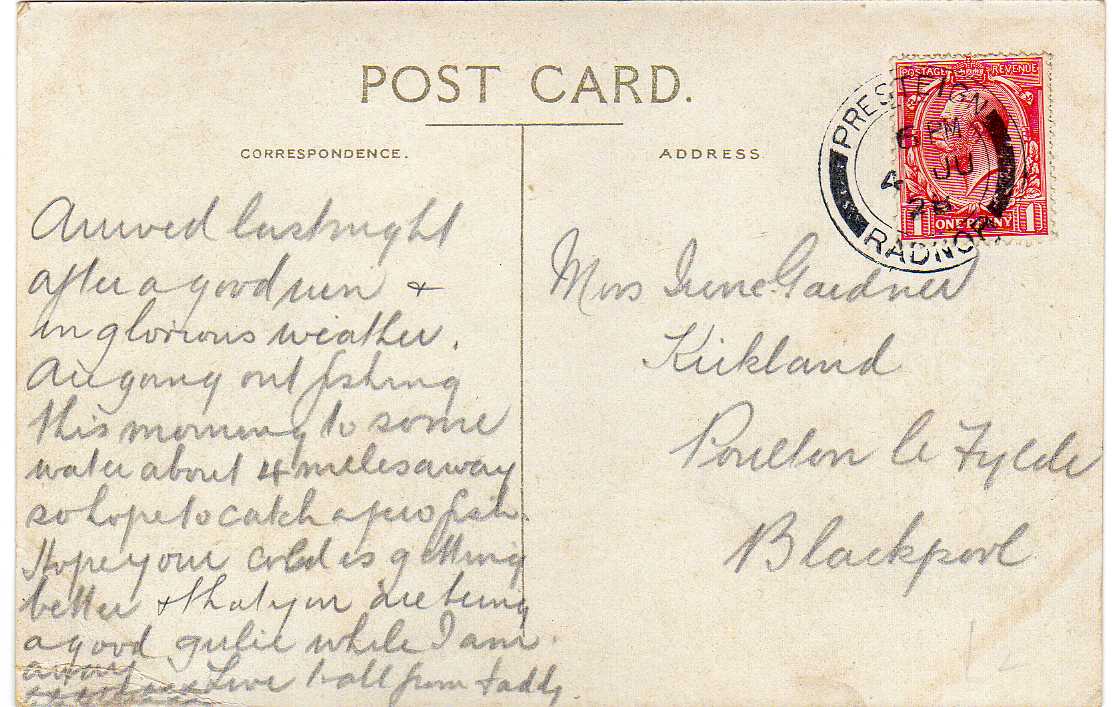 POST CARD.
CORRESPONDENCE.
ADDRESS
POSTAGE REVENUE
1 ONE PENNY 1
PRESTEIGN
6 PM
4 JU
28
RADNOR
Arrived last night
after a good run &
in glorious weather.
Are going out fishing
this morning to some
water about 4 miles away
so hope to catch a few fish.
Hope your cold is getting
better & that you are being
a good girlie while I am
away
Love to all from Daddy.
Miss Irene Gardner
Kirkland
Poulton le Fylde
Blackpool